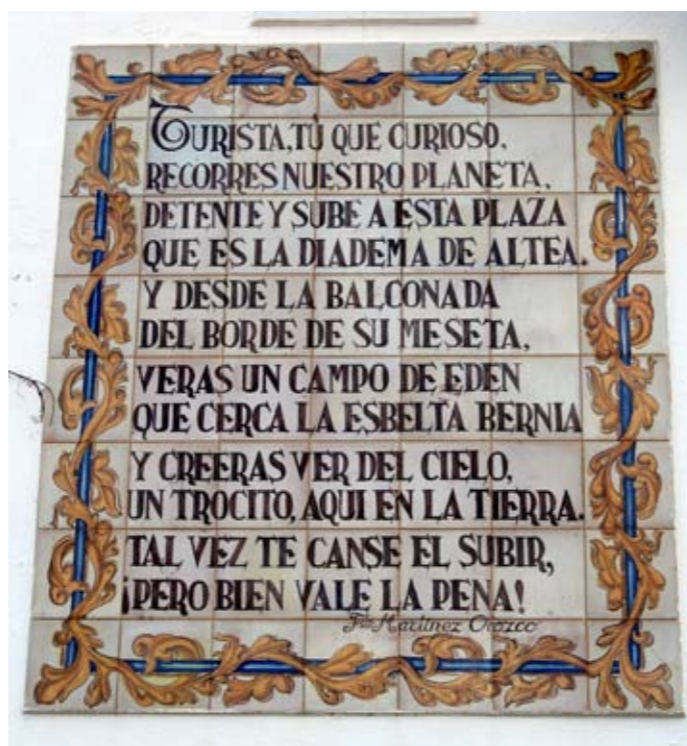 TURISTA, TÚ QUE CURIOSO,
RECORRES NUESTRO PLANETA,
DETENTE Y SUBE A ESTA PLAZA
QUE ES LA DIADEMA DE ALTEA.
Y DESDE LA BALCONADA
DEL BORDE DE SU MESETA,
VERAS UN CAMPO DE EDEN
QUE CERCA LA ESBELTA BERNIA
Y CREERAS VER DEL CIELO,
UN TROCITO, AQUI EN LA TIERRA.
TAL VEZ TE CANSE EL SUBIR,
¡PERO BIEN VALE LA PENA!
Fco Martinez Orozco